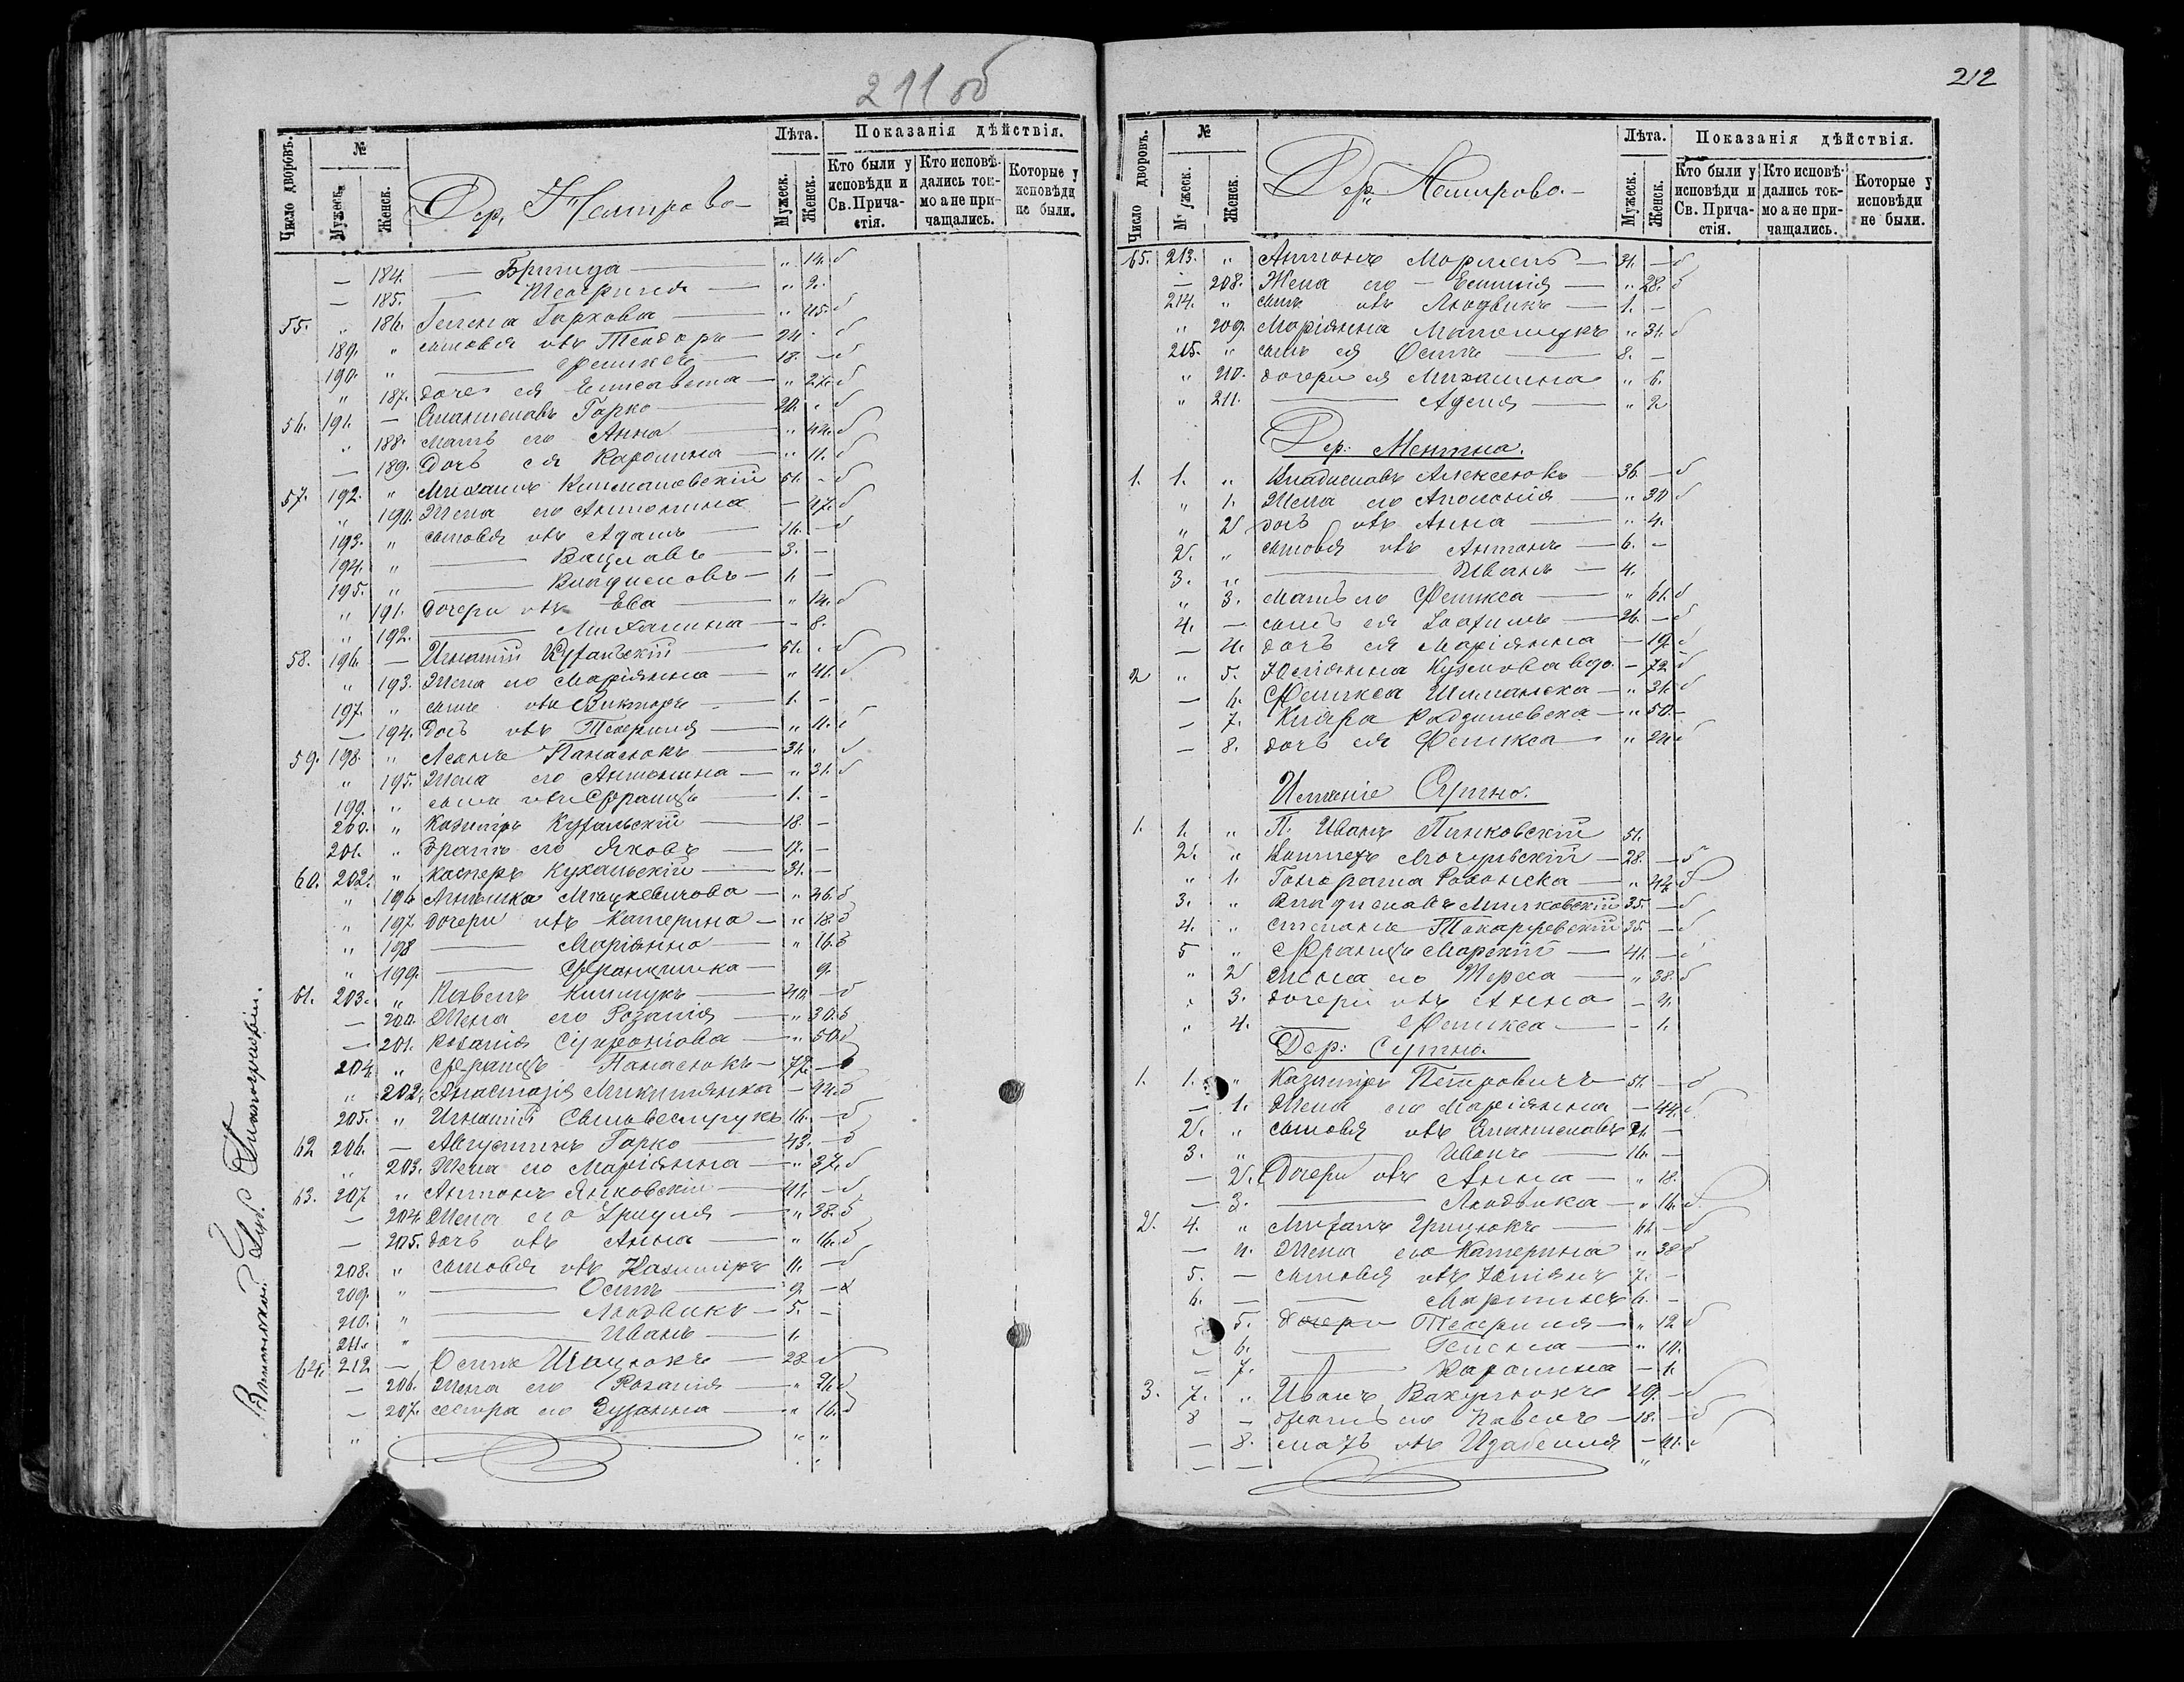 211 об
Число дворовъ. № Лѣта. Показанія дѣйствія.
Мужеск. Женск. Дер. Немирово Мужеск. Женск. Кто были у исповѣди и Св. Причастія. Кто исповѣдались токмо а не причащались. Которые у исповѣди не были.
— 184. — Бригида — " 14. б
— 185. — " 2.
55. " 186. Гелена Гаркова — " 45. б
189. " сыновья ихъ Теодоръ — 24 - б
190. " — Феликсъ — 18. — б
" 187. дочь ея Елисавета — " 27. б
56. 191. — Станиславъ Гарко — 20. " б
" 188. мать его Анна — " 44. б
— 189. Дочь ея Каролина — " 11. б
57. 192. " Михаилъ Климашевскій 51. - б
" 190. Жена его Антонина — 47. б
193. " сыновья ихъ Адамъ — 16. — б
194. " — Вацлавъ — 3. —
195. " — Владиславъ — 1. —
" 191. дочери ихъ Ева — " 14. б
" 192. — Михалина — - 8.
58. 196. — Игнатій Кухальскій — 51. . б
" 193. Жена его Маріянна — " 41. б
197. " сынъ ихъ Викторъ — 1. —
— 194. Дочь ихъ — " 11. б
59. 198. " Леонъ Панасюкъ — 31. " б
" 195. Жена его Антонина — " 31. б
199. " сынъ ихъ Францъ — 1. —
200. " Казиміръ Кухальскій — 18. —
201. " Братъ его Яковъ — 17. —
60. 202. " Касперъ Кухальскій — 31. —
" 196 Мацкевичова — " 46. б
" 197 дочери ихъ Катерина — " 18. б
" 198 — Маріянна — " 16. б
" 199. — Францишка — 9.
61. 203. " Павелъ Климукъ — 40. — б
— 200. Жена его Розалія — " 30. б
— 201. Розалія — " 50. б
204. " Францъ Панасюкъ — 77. — б
" 202. Анастазія Микитянка — 44. б
205. " Игнатій Сильвеструкъ 16. — б
62 206. — Августинъ Гарко — 43. — б
" 203. Жена его Маріянна — " 37. б
63. 207 " Антонъ Янковскій — 41. — б
— 204. Жена его Урщуля — " 38. б
— 205. дочь ихъ Анна — " 16. б
208. " сыновья ихъ Казиміръ 11. — б
209. " — Осипъ — 9. —
210. " — Людвикъ — 5. —
211. " — Иванъ — 1.
64. 212 — Осипъ Шацюкъ — 28 б
— 206. Жена его Розалія — " 21. б
— 207. сестра его Зузанна — " 16. б
Виленской Губ. Типографіи.
212
Число дворовъ. № Лѣта. Показанія дѣйствія.
Мужеск. Женск. Дер. Немирово. Мужеск. Женск. Кто были у исповѣди и Св. Причастія. Кто исповѣдались токмо а не причащались. Которые у исповѣди не были.
65. 213. " Антонъ — 31. — б
— 208. Жена его — Емилія — " 28. б
214. " сынъ ихъ Людвикъ — 1. —
" 209. Маріянна " 31. б
215. " сынъ ея Осипъ — 8. —
" 210. дочери ея Михалина " 6.
" 211. — Аделя — " 2
Дер: Ментна.
1. 1. " Владиславъ Алексеюкъ — 36. — б
" 1. Жена его Аполонія — " 30 б
" 2 дочь ихъ Анна — " 4.
2. " сыновья ихъ Антонъ — 6. —
3. " — Иванъ — 4.
" 3. мать его Феликса — " 61. б
4. — сынъ ея Іоахимъ — 26. — б
— 4. дочь ея Маріянна — 19. б
2 " 5. Юліянна Кузмова вдо. — 72 б
— 6. Феликса Шиманска — " 31. б
— 7. Кляра Радзишевска — " 50. —
— 8. дочь ея Феликса — " 20. б
Имѣніе Сутно.
1. 1. " П. Иванъ Пинковскій 51.
2. " 28. — б
" 1. Гонората Рахонска — " 44. б
3. " Владиславъ Мичковскій 35. — б
4. " Степанъ Токаржевскій 35. — б
5 " Францъ Марскій — 41. — б
" 2 Жена его Тереса — " 38. б
" 3. дочери ихъ Анна — 4.
" 4. — Феликса — — 1.
Дер: Сутно.
1. 1. " Казиміръ Петровичъ — 51. — б
— 1. Жена его Маріянна — 44. б
2. " сыновья ихъ Станиславъ 21. —
3. " — Иванъ — 16. —
— 2. Дочери ихъ Анна — " 18.
— 3. — Людвика — " 16. б
2. 4. " Михаилъ Грицюкъ — 41. — б
— 4. Жена его Катерина " 38 б
5. — сыновья ихъ Юліянъ 7. —
6. — — Мартинъ 6. —
5. дочери — " 12 б
— 6. — Гелена — " 10.
— 7. — Каролина — 1.
3. 7. " Иванъ Вакулюкъ 29. — б
8 — братъ его Павелъ — 18. — б
— 8. мать ихъ Изабелля — 41. б